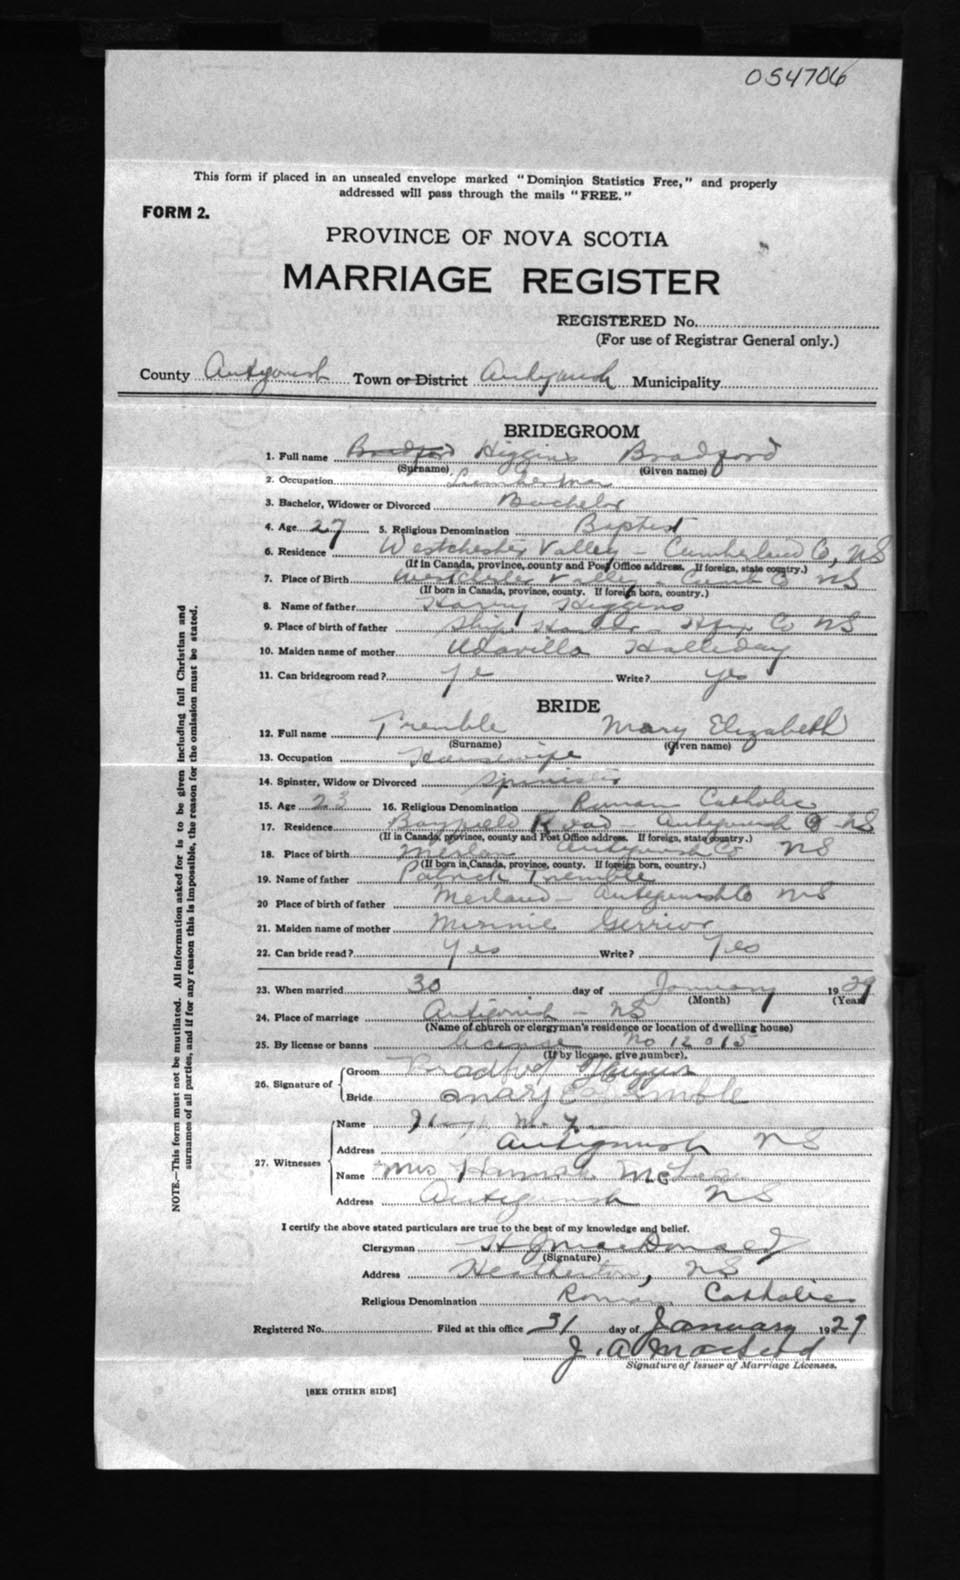 054706
This form if placed in an unsealed envelope marked "Dominion Statistics Free," and properly
addressed will pass through the mails "FREE."
FORM 2.
PROVINCE OF NOVA SCOTIA
MARRIAGE REGISTER
REGISTERED No.
(For use of Registrar General only.)
County Antigonish Town or District Antigonish Municipality
BRIDEGROOM
1. Full name Bradford Higgins Bradford
(Surname) (Given name)
2. Occupation Lumberman
3. Bachelor, Widower or Divorced Bachelor
4. Age 27 5. Religious Denomination Baptist
6. Residence Westchester Valley - Cumberland Co, NS
(If in Canada, province, county and Post Office address. If foreign, state country.)
7. Place of Birth Westchester Valley - Cumb Co NS
(If born in Canada, province, county. If foreign born, country.)
8. Name of father Harry Higgins
9. Place of birth of father Ship Harbor - Hfx Co NS
10. Maiden name of mother Halliday
11. Can bridegroom read? Write? yes
BRIDE
12. Full name Tremble Mary Elizabeth
(Surname) (Given name)
13. Occupation Housewife
14. Spinster, Widow or Divorced Spinister
15. Age 23 16. Religious Denomination Roman Catholic
17. Residence Bayfield Road - Antigonish Co NS
(If in Canada, province, county and Post Office address. If foreign, state country.)
18. Place of birth Merland Antigonish Co NS
(If born in Canada, province, county. If foreign born, country.)
19. Name of father Patrick Tremble
20 Place of birth of father Merland - Antigonish Co NS
21. Maiden name of mother Minnie Gerrior
22. Can bride read? Yes Write? Yes
23. When married 30 day of January 1929
(Month) (Year)
24. Place of marriage Antigonish - NS
(Name of church or clergyman's residence or location of dwelling house)
25. By license or banns license No 12015
(If by license, give number).
26. Signature of
Groom Bradford Higgins
Bride Mary E Tremble
27. Witnesses
Name
Address Antigonish NS
Name Mrs
Address Antigonish NS
I certify the above stated particulars are true to the best of my knowledge and belief.
Clergyman H J MacDonald
(Signature)
Address Heatherton, NS
Religious Denomination Roman Catholic
Registered No. Filed at this office 31 day of January 1929
J. A.
Signature of Issuer of Marriage Licenses.
[SEE OTHER SIDE]
NOTE.—This form must not be mutilated. All information asked for is to be given including full Christian and
surnames of all parties, and if for any reason this is impossible, the reason for the omission must be stated.